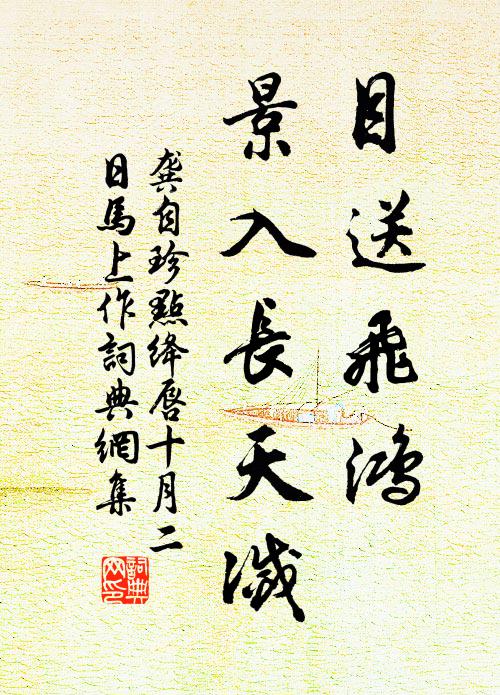 目送飛鴻
景入長天滅
龔自珍點絳唇十月二
日馬上作詞典網集
詞典
网印